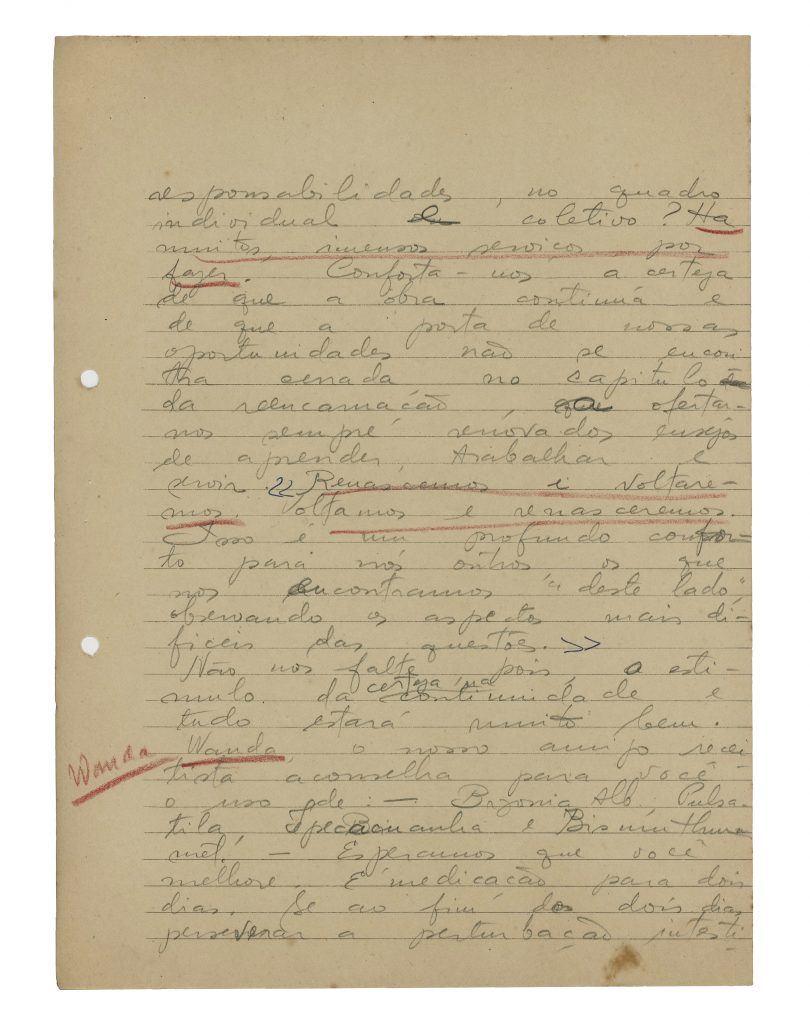 responsabilidades, no quadro
individual ou coletivo? Ha
muitos, imensos serviços por
fazer. Conforta-nos a certeza
de que a obra continúa e
de que a porta de nossas
oportunidades não se encon
tra cerrada no capitulo
da reencarnação que ofertar-
nos sempre renóvados ensejos
de aprender, trabalhar e
servir. << Renascemos e voltare-
mos. Voltamos e renasceremos.
Isso é um profundo confor-
to para nós outros os que
nos encontramos "deste lado",
observando os aspectos mais di-
ficeis das questões. >>
Não nos falte, pois, o esti-
mulo da certeza na continuidade e
tudo estará muito bem.
Wanda
Wanda, o nosso amigo recei
tista aconselha para você
o uso de: — Bryonia Alb. Pulsa-
tila, Ipecacuanha e Bismuthum
met. — Esperamos que você
melhore. É medicação para dois
dias. Se ao fim dos dois dias
perseverar a perturbação intesti-